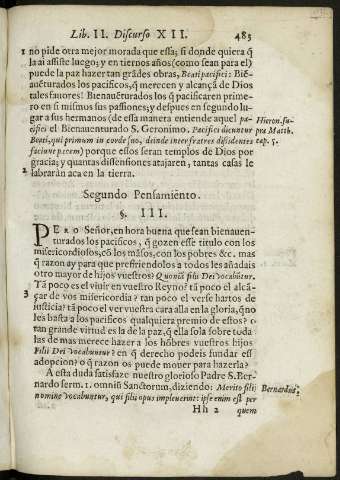 Lib. II. Discurso XII. 485
1 no pide otra mejor morada que essa; si donde quiera q̃
la ai assiste luego; y en tiernos años (como sean para el)
puede la paz hazer tan grãdes obras, Beati pacifici: Biē-
auēturados los pacificos, q̃ merecen y alcançã de Dios
tales fauores! Bienauēturados los q̃ pacificaren prime-
ro en si mismos sus passiones; y despues en segundo lu-
gar a sus hermanos (de essa manera entiende aquel pa-
cifici el Bienauenturado S. Geronimo. Pacifici dicuntur
Beati, qui primum in corde suo, deinde inter fratres dissidentes
faciunt pacem) porque essos seran templos de Dios por
gracia; y quantas dissensiones atajaren, tantas casas le
2 labrarán aca en la tierra.
Hieron. su-
pra Matth.
cap. 5.
Segundo Pensamiēto.
§. III.
PERO Señor, en hora buena que sean bienauen-
turados los pacificos, q̃ gozen esse titulo con los
misericordiosos, cõ los mãsos, con los pobres &c. mas
q̃ razon ay para que prefiriendolos a todos les añadais
otro mayor de hijos vuestros? Quoniã filii Dei vocabũtur.
Tã poco es el viuir en vuestro Reyno? tã poco el alcã-
3 çar de vos misericordia? tan poco el verse hartos de
iusticia? tã poco el ver vuestra cara alla en la gloria, q̃ no
les basta a los pacificos qualquiera premio de estos? o
tan grande virtud es la de la paz, q̃ ella sola sobre toda
las de mas merece hazer a los hõbres vuestros hijos
Filii Dei vocabuntur? en q̃ derecho podeis fundar essa
adopcion? o q̃ razon os puede mouer para hazerla?
A esta duda satisfaze nuestro glorioso Padre S. Ber-
nardo serm. 1. omniũ Sanctorum, diziendo: Merito filij
nomine vocabuntur, qui filii opus impleuerint: ipse enim est per
Bernardus,
Hh 2 quem